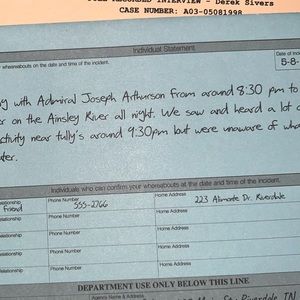 RECORDED INTERVIEW - Derek Sivers
CASE NUMBER: A03-05081998
Individual Statement
whereabouts on the date and time of the incident.
Date of Inc
5-8-
with Admiral Joseph Arthurson from around 8:30 pm to
on the Ainsley River all night. We saw and heard a lot o
ctivity near tully's around 9:30pm but were unaware of wha
Individuals who can confirm your whereabouts at the date and time of the incident.
elationship
Phone Number
Home Address
friend
555-2766
223 Altmonte Dr. Riverdale
elationship
Phone Number
Home Address
elationship
Phone Number
Home Address
elationship
Phone Number
Home Address
DEPARTMENT USE ONLY BELOW THIS LINE
Agency Name & Address
Riverdale, IN